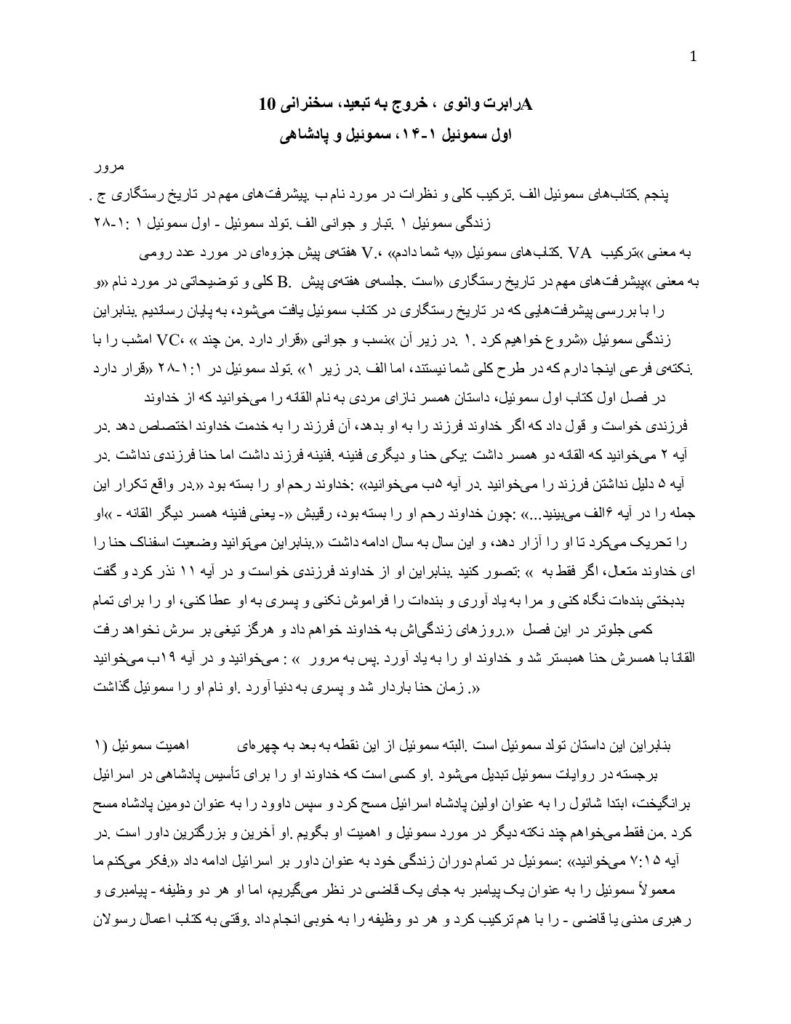 1
Aرابرت وانوی ، خروج به تبعید، سخنرانی 10
اول سموئیل ۱-۱۴، سموئیل و پادشاهی
مرور
پنجم .کتاب‌های سموئیل الف .ترکیب کلی و نظرات در مورد نام ب .پیشرفت‌های مهم در تاریخ رستگاری ج .
زندگی سموئیل ۱ .تبار و جوانی الف .تولد سموئیل - اول سموئیل ۱ :۱-۲۸
به معنی »ترکیب VA .کتاب‌های سموئیل «به شما دادم» ،.V هفته‌ی پیش جزوه‌ای در مورد عدد رومی
به معنی »پیشرفت‌های مهم در تاریخ رستگاری «است .جلسه‌ی هفته‌ی پیش .B کلی و توضیحاتی در مورد نام «و
را با بررسی پیشرفت‌هایی که در تاریخ رستگاری در کتاب سموئیل یافت می‌شود، به پایان رساندیم .بنابراین
زندگی سموئیل «شروع خواهیم کرد .۱ .در زیر آن »نسب و جوانی «قرار دارد .من چند » ،VC امشب را با
.نکته‌ی فرعی اینجا دارم که در طرح کلی شما نیستند، اما الف .در زیر ۱» .تولد سموئیل در ۱:۱-۲۸ «قرار دارد
در فصل اول کتاب اول سموئیل، داستان همسر نازای مردی به نام القانه را می‌خوانید که از خداوند
فرزندی خواست و قول داد که اگر خداوند فرزند را به او بدهد، آن فرزند را به خدمت خداوند اختصاص دهد .در
آیه ۲ می‌خوانید که القانه دو همسر داشت :یکی حنا و دیگری فنینه .فنینه فرزند داشت اما حنا فرزندی نداشت .در
آیه ۵ دلیل نداشتن فرزند را می‌خوانید .در آیه ۵ب می‌خوانید» :خداوند رحم او را بسته بود «.در واقع تکرار این
جمله را در آیه ۶الف می‌بینید...» :چون خداوند رحم او را بسته بود، رقیبش «- یعنی فنینه همسر دیگر القانه - »او
را تحریک می‌کرد تا او را آزار دهد، و این سال به سال ادامه داشت «.بنابراین می‌توانید وضعیت اسفناک حنا را
ای خداوند متعال، اگر فقط به » :تصور کنید .بنابراین او از خداوند فرزندی خواست و در آیه ۱۱ نذر کرد و گفت
بدبختی بنده‌ات نگاه کنی و مرا به یاد آوری و بنده‌ات را فراموش نکنی و پسری به او عطا کنی، او را برای تمام
کمی جلوتر در این فصل «.روزهای زندگی‌اش به خداوند خواهم داد و هرگز تیغی بر سرش نخواهد رفت
القانا با همسرش حنا همبستر شد و خداوند او را به یاد آورد .پس به مرور » : می‌خوانید و در آیه ۱۹ب می‌خوانید
«. زمان حنا باردار شد و پسری به دنیا آورد .او نام او را سموئیل گذاشت
بنابراین این داستان تولد سموئیل است .البته سموئیل از این نقطه به بعد به چهره‌ای اهمیت سموئیل (۱
برجسته در روایات سموئیل تبدیل می‌شود .او کسی است که خداوند او را برای تأسیس پادشاهی در اسرائیل
برانگیخت، ابتدا شائول را به عنوان اولین پادشاه اسرائیل مسح کرد و سپس داوود را به عنوان دومین پادشاه مسح
کرد .من فقط می‌خواهم چند نکته دیگر در مورد سموئیل و اهمیت او بگویم .او آخرین و بزرگترین داور است .در
آیه ۷:۱۵ می‌خوانید» :سموئیل در تمام دوران زندگی خود به عنوان داور بر اسرائیل ادامه داد «.فکر می‌کنم ما
معمولاً سموئیل را به عنوان یک پیامبر به جای یک قاضی در نظر می‌گیریم، اما او هر دو وظیفه - پیامبری و
رهبری مدنی یا قاضی - را با هم ترکیب کرد و هر دو وظیفه را به خوبی انجام داد .وقتی به کتاب اعمال رسولان